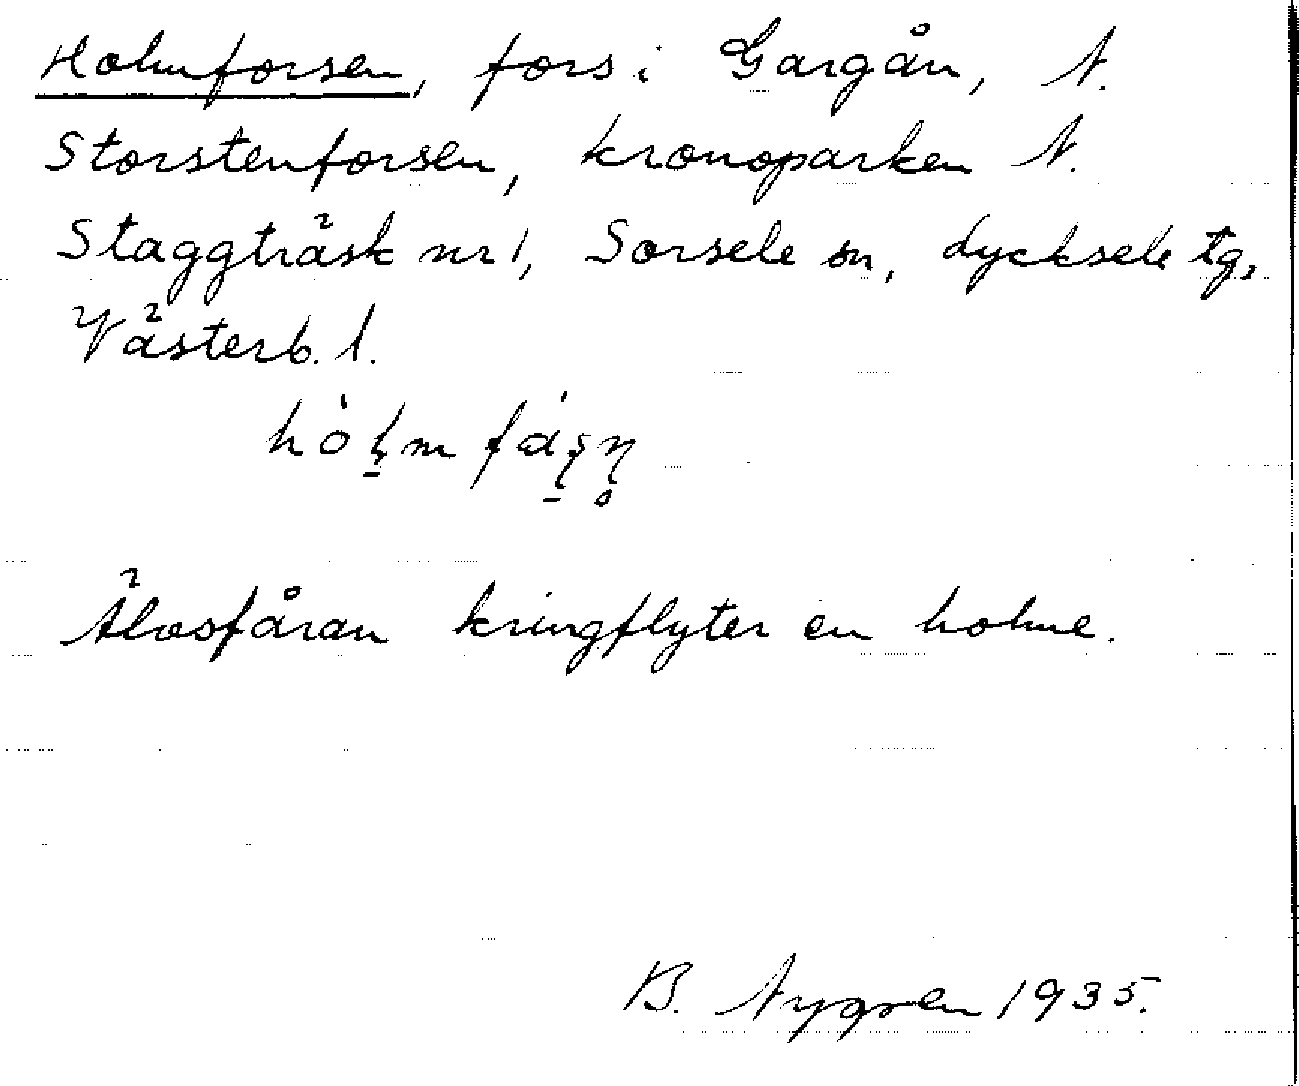 Holmforsen, fors i Gargån, N.
Storstenforsen, kronoparken N.
Staggträsk nr 1, Sorsele sn, Lycksele tg,
Västerb. l.
Älvsfåran kringflyter en holme.
B. Nygren 1935.